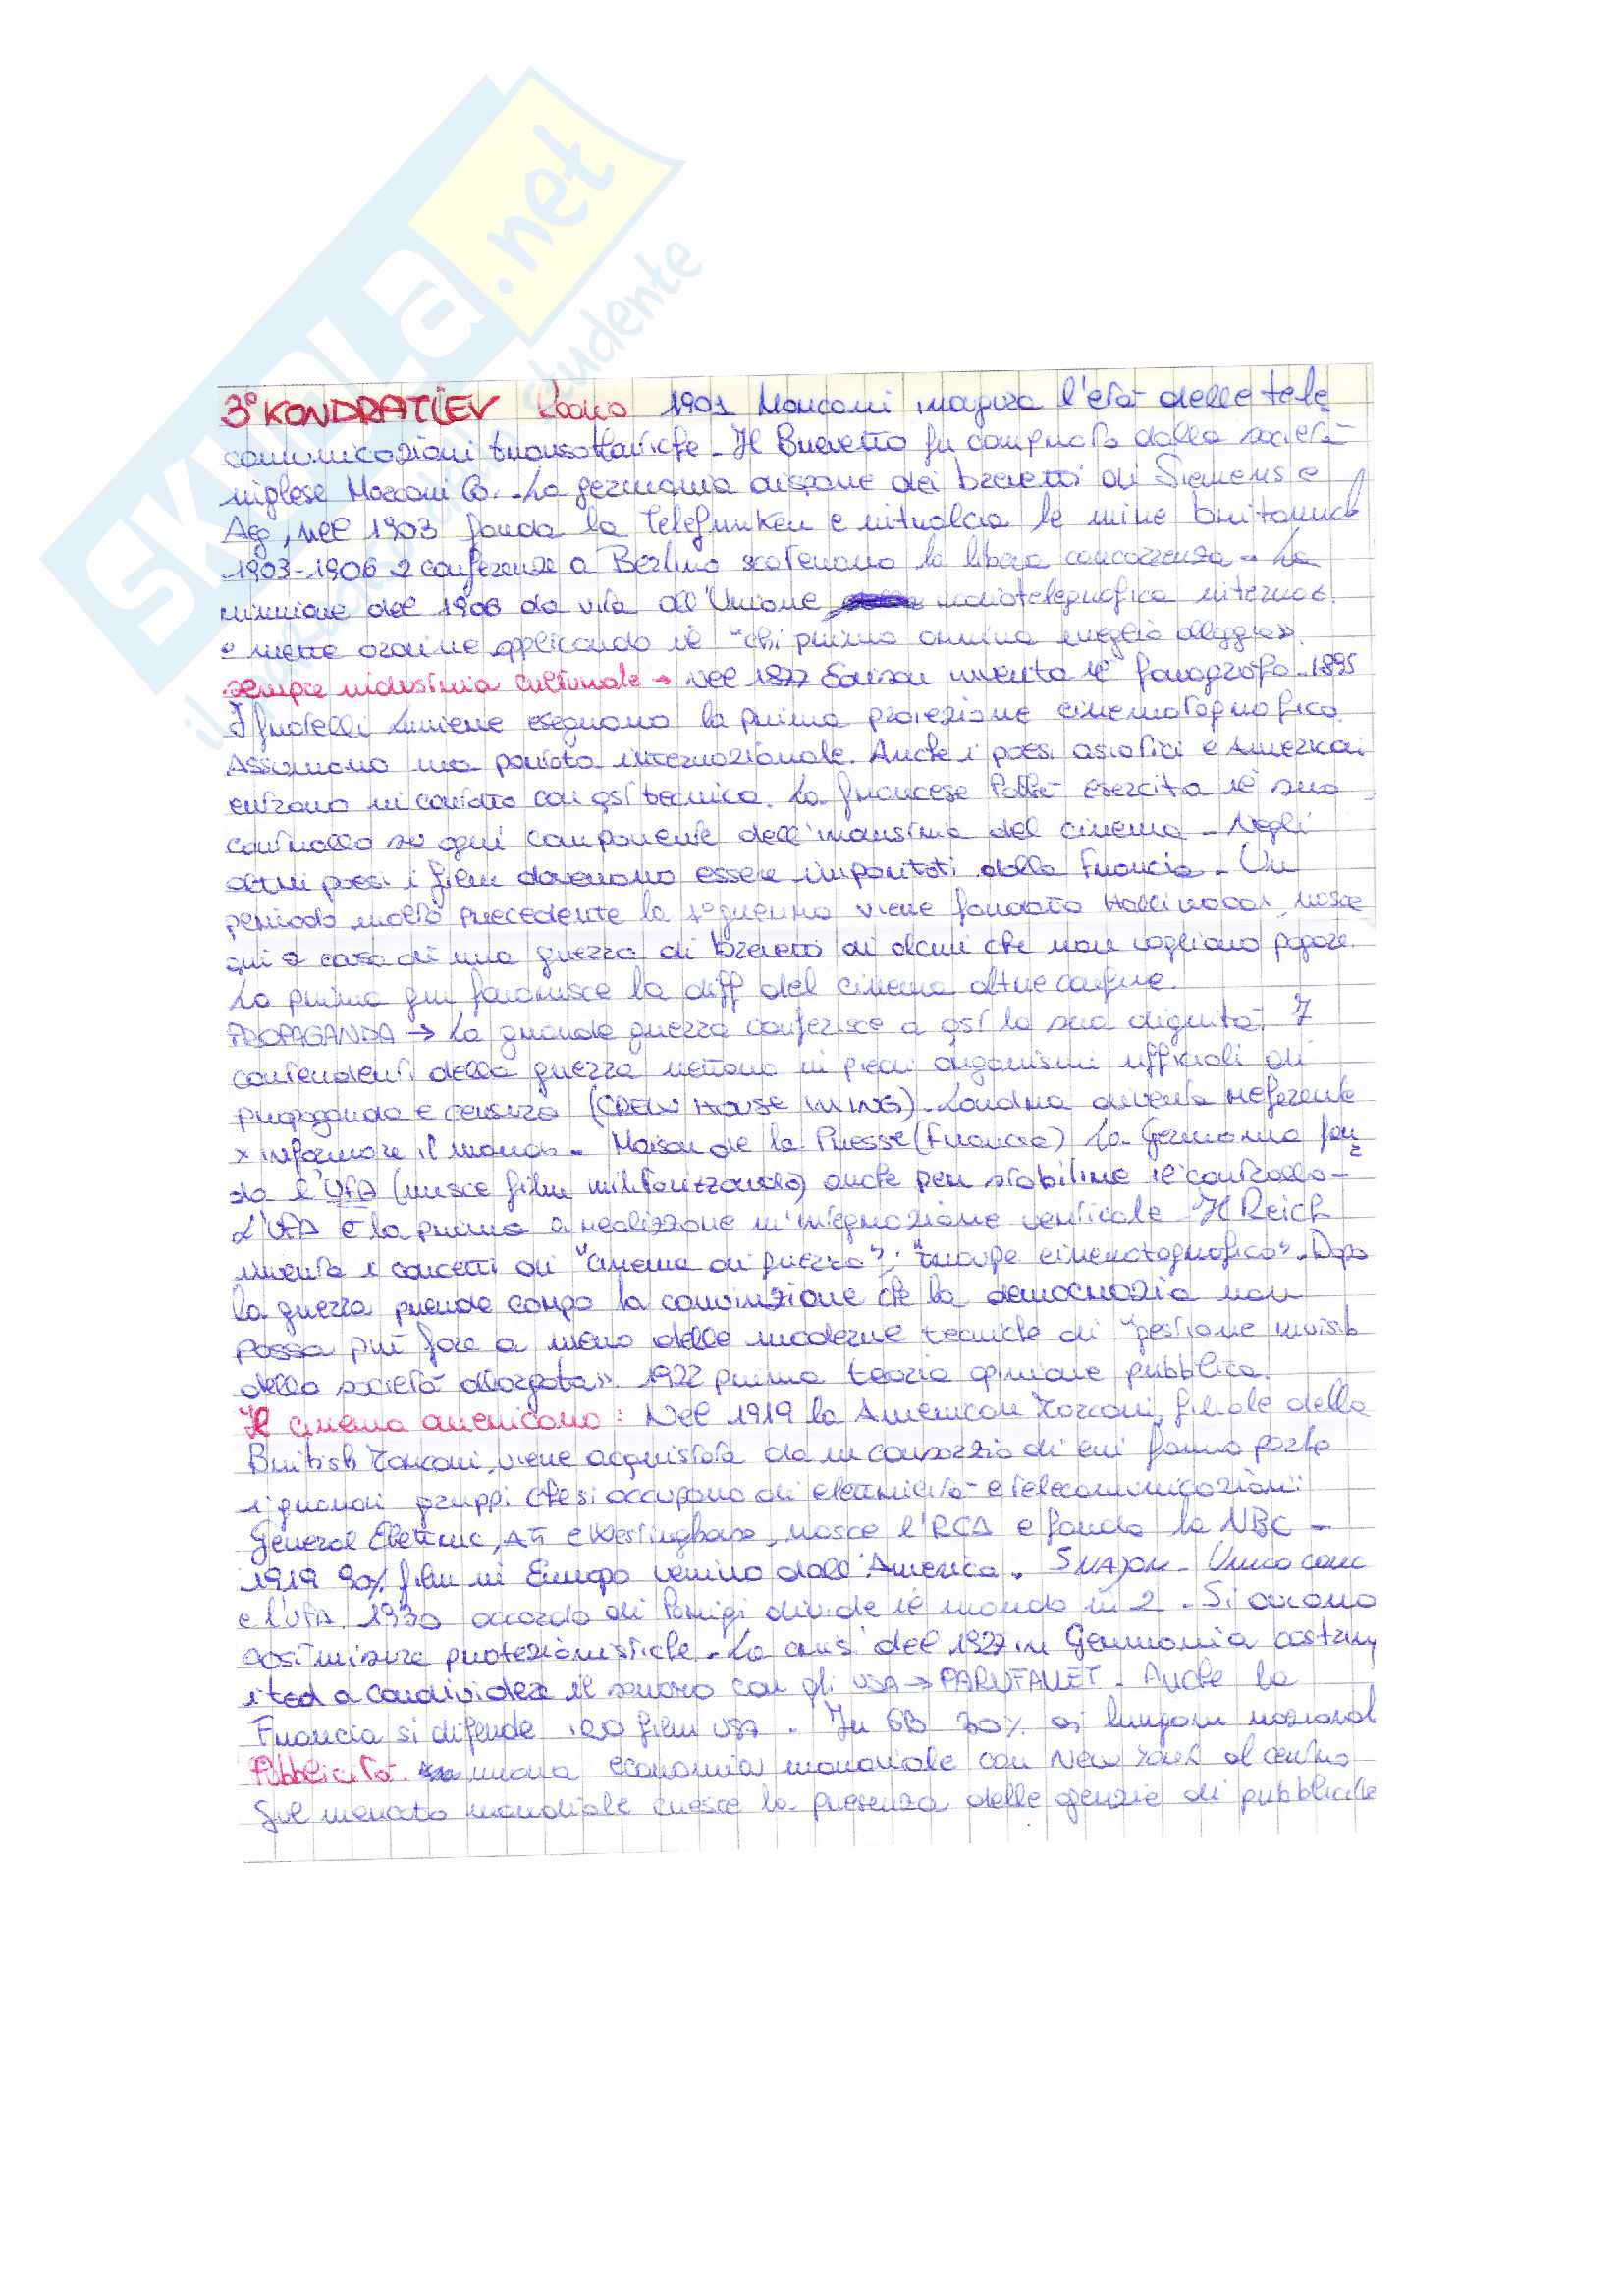 SKUOLA.net
il meglio dello studente
3° KONDRATIEV Radio 1901 Marconi inaugura l'età delle tele
comunicazioni transatlantiche - Il Brevetto fu comprato dalla società
inglese Marconi Co. - La germania dispone dei brevetti di Siemens e
Aeg, nel 1903 fonda la Telefunken e intralcia le mire britanniche
1903-1906 2 conferenze a Berlino scatenano la libera concorrenza - La
riunione del 1906 da vita all'Unione radiotelegrafica internaz.
e mette ordine applicando il "chi primo arriva meglio alloggia".
sempre industria culturale → Nel 1877 Edison inventa il fonografo - 1895
I fratelli Lumiere eseguono la prima proiezione cinematografica
Assumono una portata internazionale. Anche i paesi asiatici e Americani
entrano in contatto con qst tecnica. La francese Pathè esercita il suo
controllo su ogni componente dell'industria del cinema - Negli
altri paesi i film dovevano essere importati dalla Francia - Un
periodo molto precedente la 1° guerra viene fondata Hollivood, nasce
qui a causa di una guerra di brevetti di alcuni che non vogliono pagare
La prima gm favorisce la diff del cinema oltre confine.
PROPAGANDA → La grande guerra conferisce a qst la sua dignità; I
contendenti della guerra mettono in piedi organismi ufficiali di
propaganda e censura (CREW HOUSE IN ING). Londra diventa referente
x informare il mondo - Maison de la Presse (Francia) La Germania fon
da l'UFA (unisce film militarizzando) anche per stabilirne il controllo -
L'UFA è la prima a realizzare un'integrazione verticale Il Reich
inventa i concetti di "Cinema di guerra", "troupe cinematografica". Dopo
la guerra prende corpo la convinzione che la democrazia non
possa più fare a meno delle moderne tecniche di "gestione invisib
della società allargata". 1922 prima teoria opinione pubblica.
Il cinema americano: Nel 1919 la American Marconi, filiale della
British Marconi, viene acquistata da un consorzio di cui fanno parte
i grandi gruppi che si occupano di elettricità e telecomunicazioni:
General Eletric, ATT e Westinghouse, nasce l'RCA e fonda la NBC -
1919 90% film in Europa venivano dall'America. 5 major - Unico conc
e l'UFA. 1930 accordo di Parigi divide il mondo in 2 - Si avranno
così misure protezionistiche - La crisi del 1927 in Germania costrin
i ted a condividere il sonoro con gli USA → PARUFAMET. Anche la
Francia si difende 120 film USA. In GB 30% di lungom nazional
Pubblicità. nuova economia mondiale con New York al centro
Sul mercato mondiale cresce la presenza delle agenzie di pubblicità